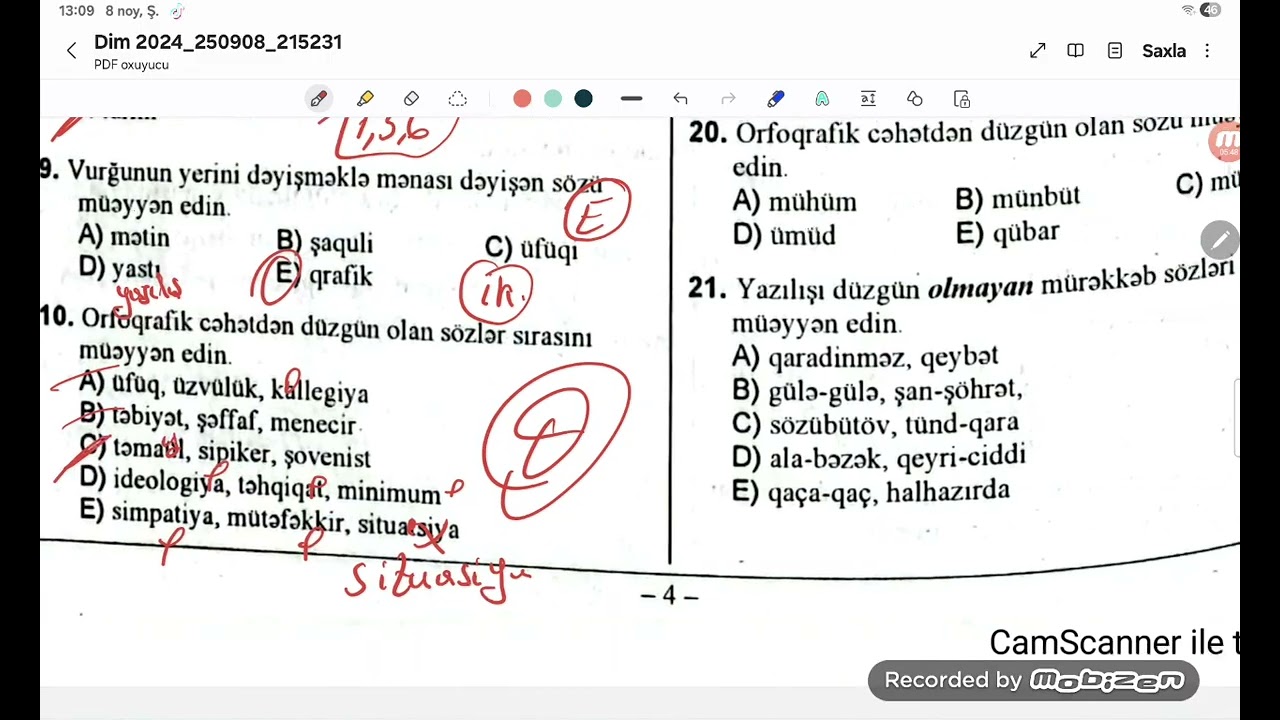 13:09 8 noy, Ş.
46
Dim 2024_250908_215231
PDF oxuyucu
Saxla
1,5,6
9. Vurğunun yerini dəyişməklə mənası dəyişən sözü
müəyyən edin.
E
A) mətin B) şaquli C) üfüqı
D) yastı E) qrafik
ik.
10. Orfoqrafik cəhətdən düzgün olan sözlər sırasını
müəyyən edin.
A) üfüq, üzvülük, kallegiya
B) təbiyət, şəffaf, menecir
C) təmaul, sipiker, şovenist
D) ideologiya, təhqiqat, minimum
E) simpatiya, mütəfəkkir, situatsiya
situasiya
20. Orfoqrafik cəhətdən düzgün olan sözü
edin.
A) mühüm B) münbüt C) mü
D) ümüd E) qübar
21. Yazılışı düzgün olmayan mürəkkəb sözləri
müəyyən edin.
A) qaradinməz, qeybət
B) gülə-gülə, şan-şöhrət,
C) sözübütöv, tünd-qara
D) ala-bəzək, qeyri-ciddi
E) qaça-qaç, halhazırda
– 4 –
CamScanner ile
Recorded by MOBIZEN
05:48